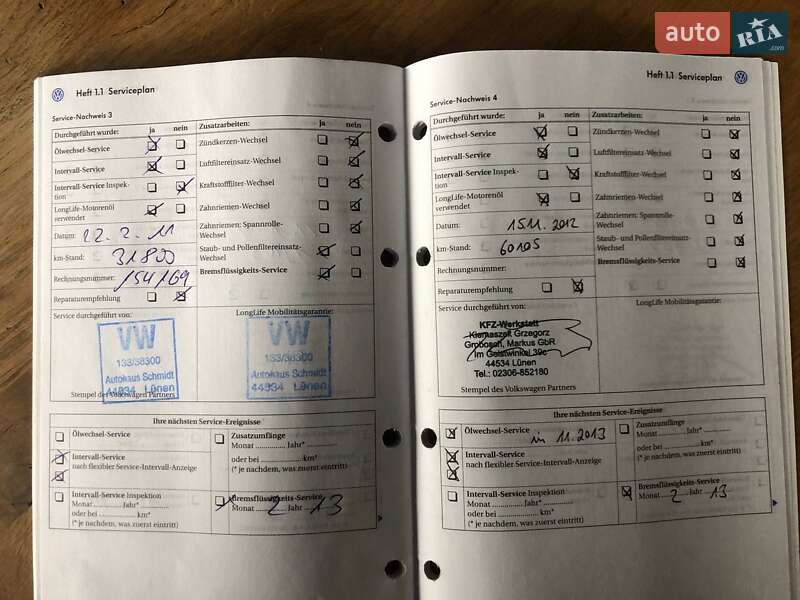 auto RIA .com
Heft 1.1 Serviceplan
Service-Nachweis 3
Durchgeführt wurde: ja nein Zusatzarbeiten: ja nein
Ölwechsel-Service
Zündkerzen-Wechsel
Intervall-Service
Luftfiltereinsatz-Wechsel
Intervall-Service Inspek-
tion
Kraftstofffilter-Wechsel
LongLife-Motorenöl
verwendet
Zahnriemen-Wechsel
Datum: 22.2.11
Zahnriemen: Spannrolle-
Wechsel
km-Stand: 31800
Staub- und Pollenfiltereinsatz-
Wechsel
Rechnungsnummer: 154169
Bremsflüssigkeits-Service
Reparaturempfehlung
Service durchgeführt von:
LongLife Mobilitätsgarantie:
VW
133/38300
Autohaus Schmidt
44534 Lünen
VW
133/38300
Autohaus Schmidt
44534 Lünen
Stempel des Volkswagen Partners
Ihre nächsten Service-Ereignisse
Ölwechsel-Service
Zusatzumfänge
Monat .............. Jahr*
Intervall-Service
nach flexibler Service-Intervall-Anzeige
oder bei .................. km*
(* je nachdem, was zuerst eintritt)
Intervall-Service Inspektion
Monat .............. Jahr*
oder bei .................. km*
(* je nachdem, was zuerst eintritt)
Bremsflüssigkeits-Service
Monat 2 Jahr 13
Heft 1.1 Serviceplan
Service-Nachweis 4
Durchgeführt wurde: ja nein Zusatzarbeiten: ja nein
Ölwechsel-Service
Zündkerzen-Wechsel
Intervall-Service
Luftfiltereinsatz-Wechsel
Intervall-Service Inspek-
tion
Kraftstofffilter-Wechsel
LongLife-Motorenöl
verwendet
Zahnriemen-Wechsel
Datum: 15.11.2012
Zahnriemen: Spannrolle-
Wechsel
km-Stand: 60105
Staub- und Pollenfiltereinsatz-
Wechsel
Rechnungsnummer:
Bremsflüssigkeits-Service
Reparaturempfehlung
Service durchgeführt von:
LongLife Mobilitätsgarantie:
KFZ-Werkstatt
Grzegorz
Markus GbR
Im Geistwinkel 39c
44534 Lünen
Tel.: 02306-852180
Stempel des Volkswagen Partners
Ihre nächsten Service-Ereignisse
Ölwechsel-Service
in 11.2013
Zusatzumfänge
Monat .............. Jahr*
Intervall-Service
nach flexibler Service-Intervall-Anzeige
oder bei .................. km*
(* je nachdem, was zuerst eintritt)
Intervall-Service Inspektion
Monat .............. Jahr*
oder bei .................. km*
(* je nachdem, was zuerst eintritt)
Bremsflüssigkeits-Service
Monat 2 Jahr 13